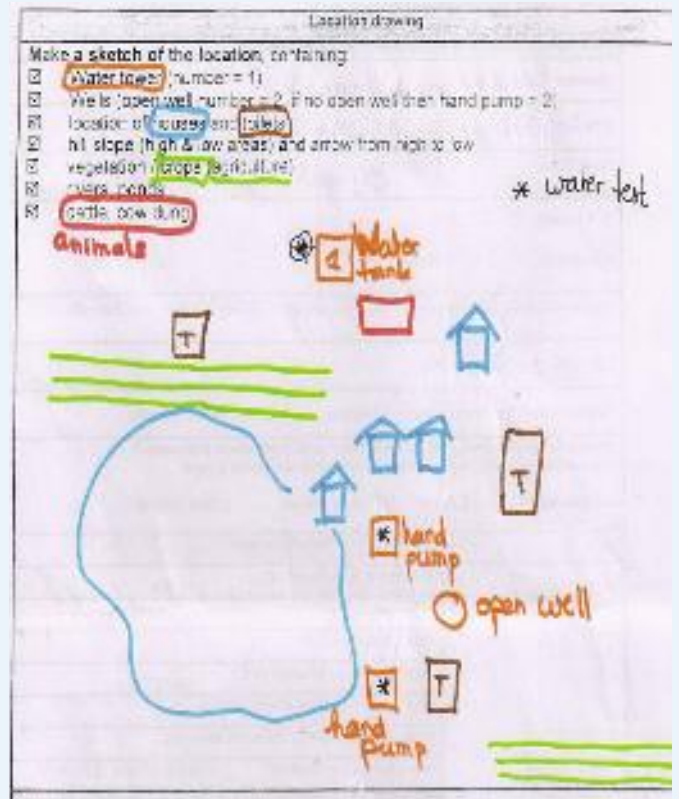 Location drawing
Make a sketch of the location, containing
Water tower (number = 1)
Wells (open well number = 2, if no open well then hand pump = 2)
location of houses and toilets
hill slope (high & low areas) and arrow from high to low
vegetation (crops (agriculture)
rivers, ponds
cattle, cow dung
animals
* water test
* 1 Water
tank
T
T
* hand
pump
open well
* T
hand
pump